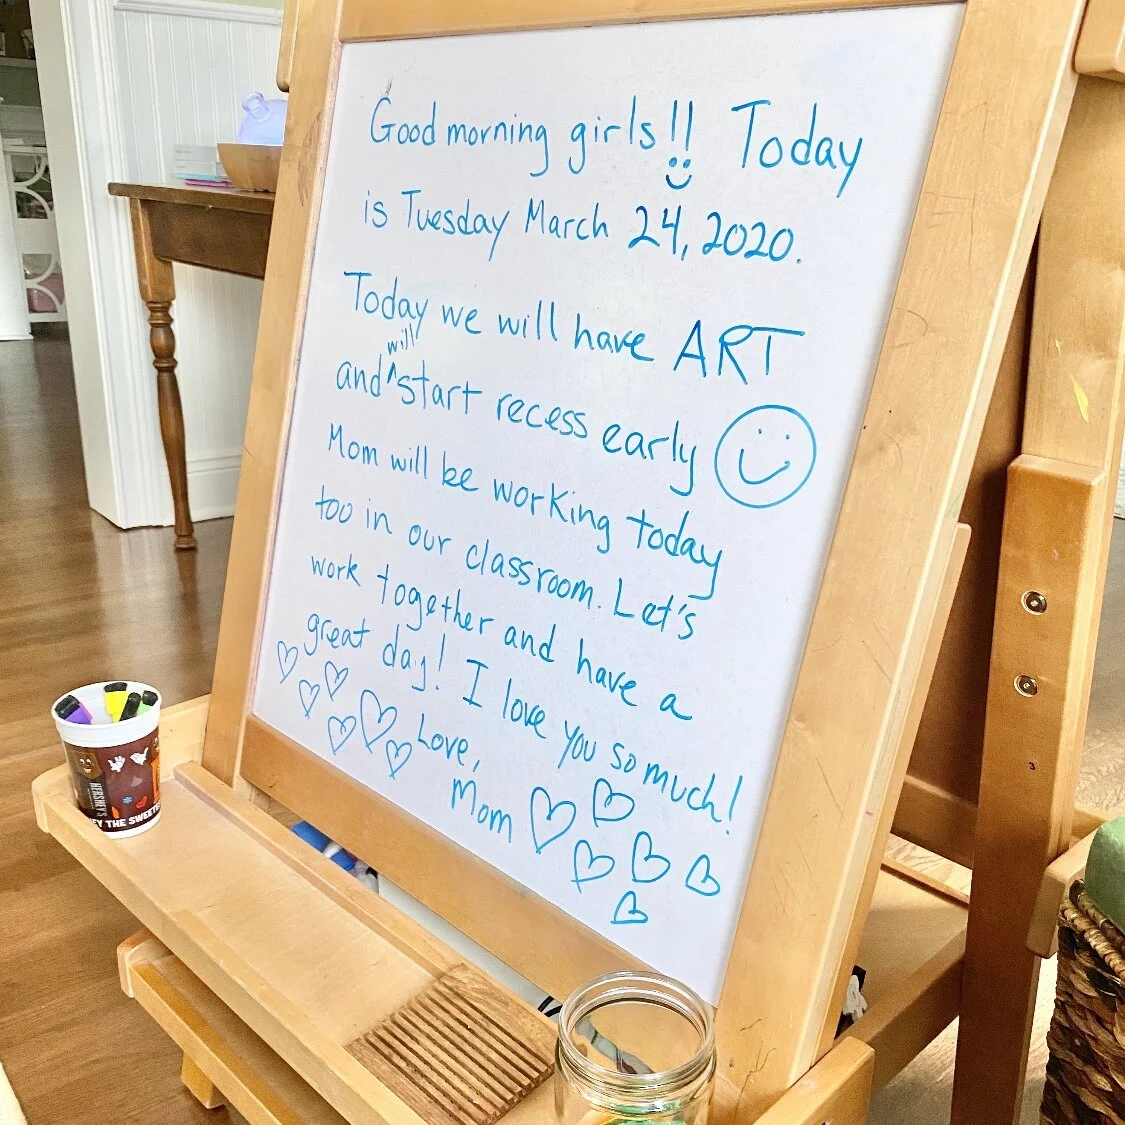 Good morning girls!! Today
is Tuesday March 24, 2020.
Today we will have ART
and ^will start recess early
Mom will be working today
too in our classroom. Let's
work together and have a
great day! I love you so much!
Love,
Mom
HERSHEY'S
EY THE SWEETE
3